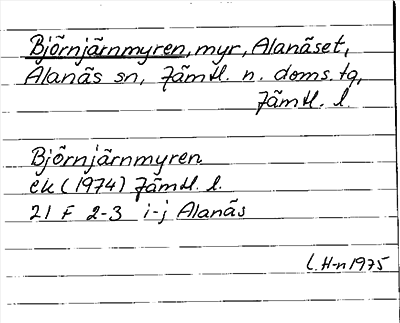 Björnjärnmyren, myr, Alanäset,
Alanäs sn, Jämtl. n. doms. tg,
Jämtl. l.
Björnjärnmyren
ek (1974) Jämtl. l.
21 F 2-3 i-j Alanäs
L. H-n 1975